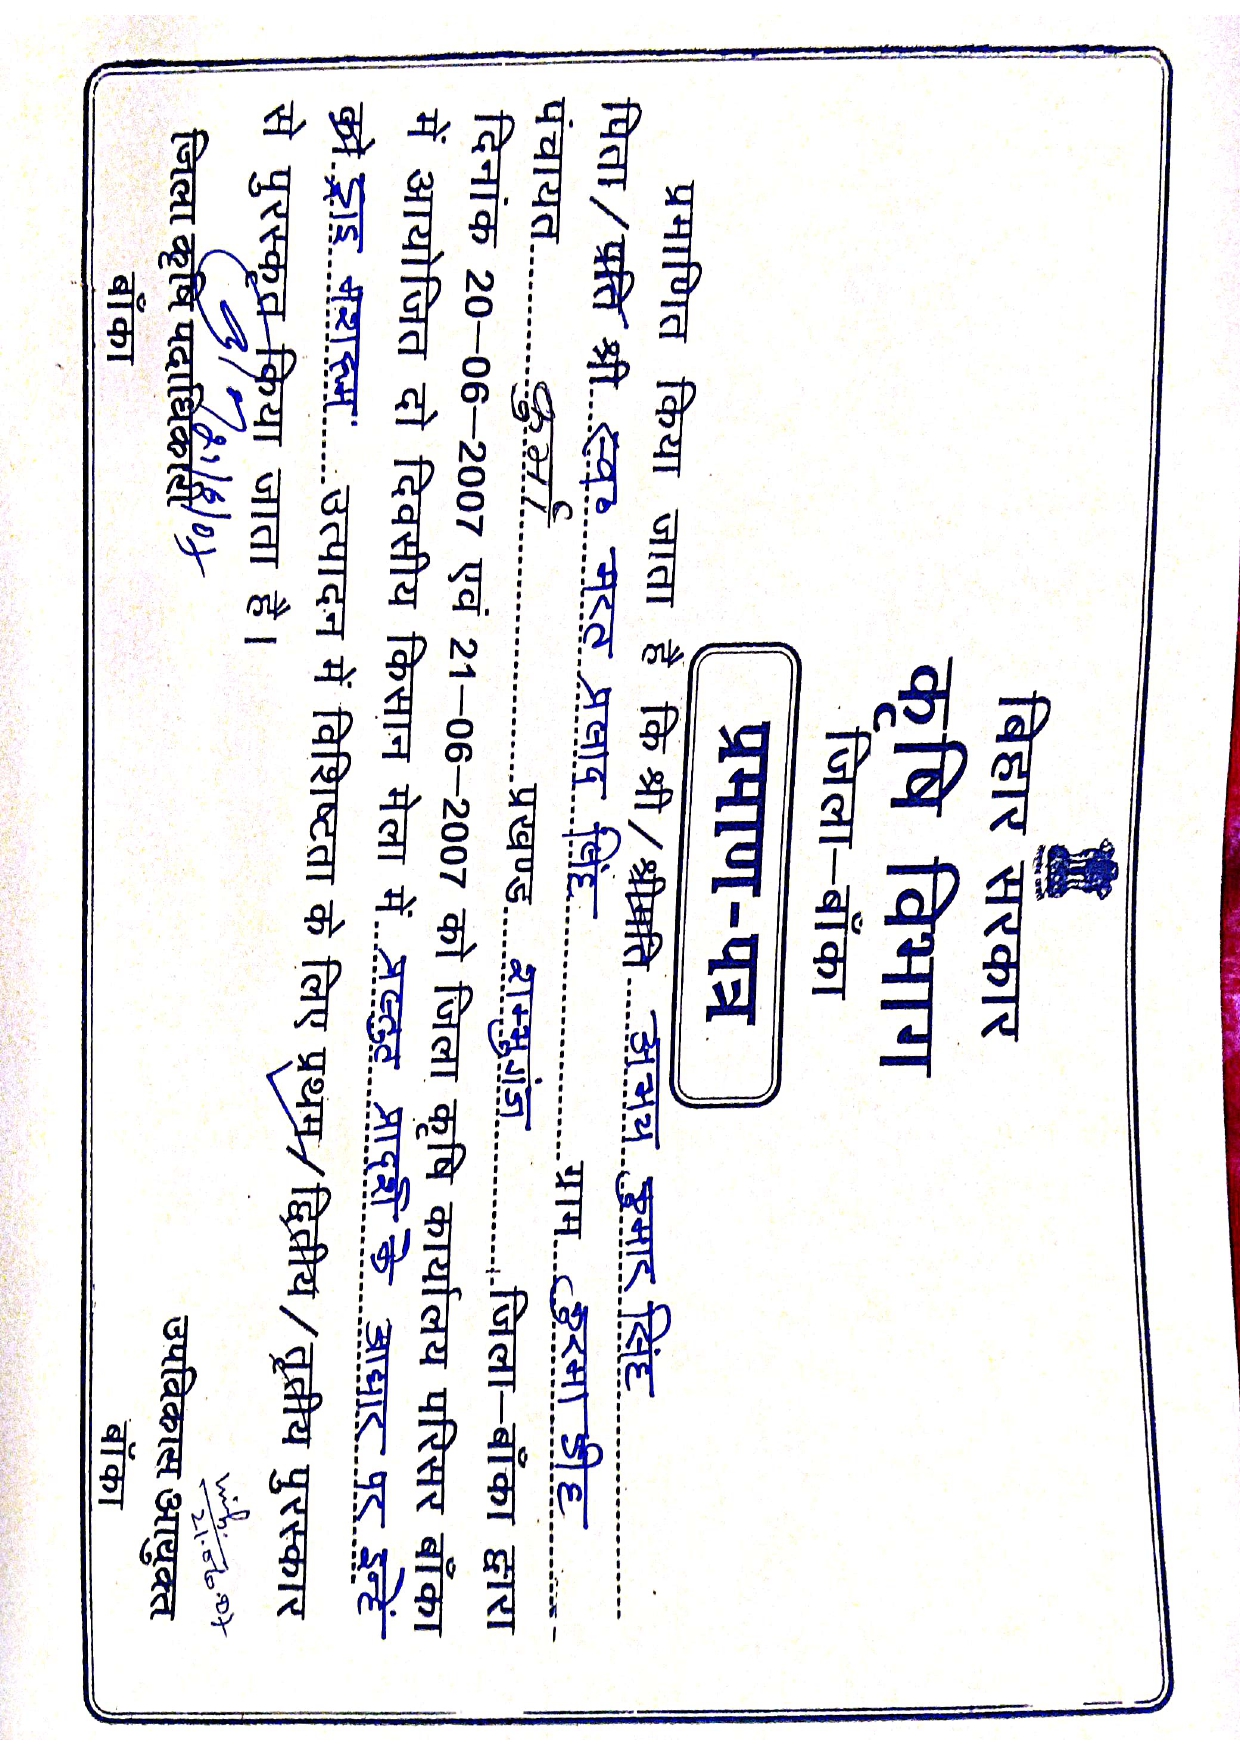 बिहार सरकार
कृषि विभाग
जिला–बाँका
प्रमाण-पत्र
प्रमाणित किया जाता है कि श्री/श्रीमति अभय कुमार सिंह
पिता/पति श्री स्व० भरत प्रसाद सिंह ग्राम कुरमा डीह
पंचायत कुर्मा प्रखण्ड शम्भुगंज जिला–बाँका द्वारा
दिनांक 20–06–2007 एवं 21–06–2007 को जिला कृषि कार्यालय परिसर बाँका
में आयोजित दो दिवसीय किसान मेला में प्रस्तुत प्रादर्श के आधार पर इन्हें
को ड्राइ मशरूम उत्पादन में विशिष्टता के लिए प्रथम/द्वितीय/तृतीय पुरस्कार
से पुरस्कृत किया जाता है।
21/6/07
21.06.07
जिला कृषि पदाधिकारी
बाँका
उपविकास आयुक्त
बाँका